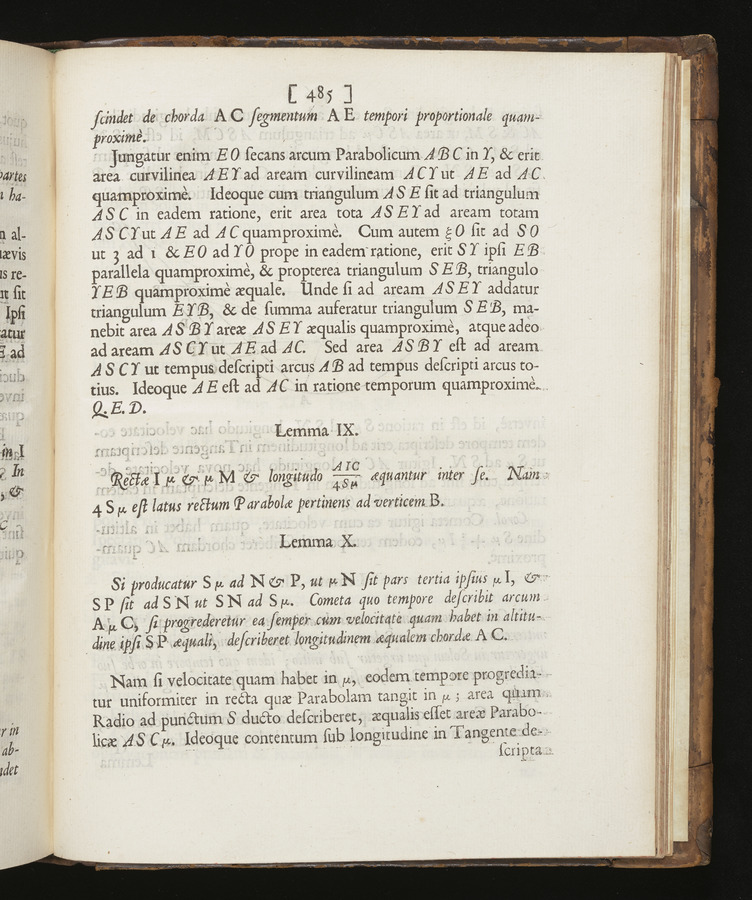 [ 485 ]
ſcindet de chorda A C ſegmentum A E tempori proportionale quam-
proximè.
Jungatur enim E O ſecans arcum Parabolicum A B C in Y, & erit
area curvilinea A E Y ad aream curvilineam A C Y ut A E ad A C
quamproximè. Ideoque cum triangulum A S E ſit ad triangulum
A S C in eadem ratione, erit area tota A S E Y ad aream totam
A S C Y ut A E ad A C quamproximè. Cum autem ξ O ſit ad S O
ut 3 ad 1 & E O ad Y O prope in eadem ratione, erit S Y ipſi E B
parallela quamproximè, & propterea triangulum S E B, triangulo
Y E B quamproximè æquale. Unde ſi ad aream A S E Y addatur
triangulum E Y B, & de ſumma auferatur triangulum S E B, ma-
nebit area A S B Y areæ A S E Y æqualis quamproximè, atque adeo
ad aream A S C Y ut A E ad A C. Sed area A S B Y eſt ad aream
A S C Y ut tempus deſcripti arcus A B ad tempus deſcripti arcus to-
tius. Ideoque A E eſt ad A C in ratione temporum quamproximè.
Q. E. D.
Lemma IX.
Rectæ I μ & μ M & longitudo AIC/4Sμ æquantur inter ſe. Nam
4 S μ eſt latus rectum Parabolæ pertinens ad verticem B.
Lemma X.
Si producatur S μ ad N & P, ut μ N ſit pars tertia ipſius μ I, &
S P ſit ad S N ut S N ad S μ. Cometa quo tempore deſcribit arcum
A μ C, ſi progrederetur ea ſemper cum velocitate quam habet in altitu-
dine ipſi S P æquali, deſcriberet longitudinem æqualem chordæ A C.
Nam ſi velocitate quam habet in μ, eodem tempore progredia-
tur uniformiter in recta quæ Parabolam tangit in μ ; area quam
Radio ad punctum S ducto deſcriberet, æqualis eſſet areæ Parabo-
licæ A S C μ. Ideoque contentum ſub longitudine in Tangente de-
ſcripta